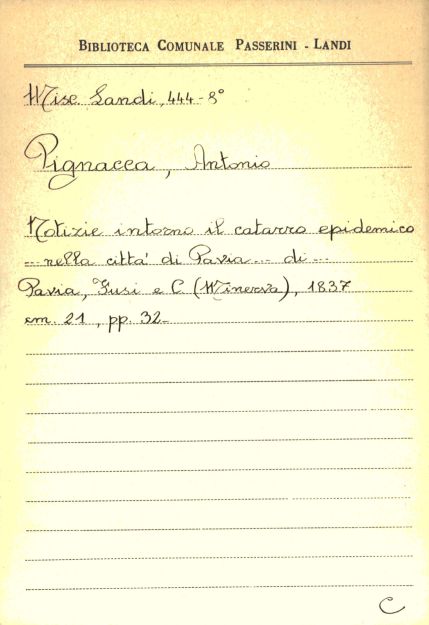 BIBLIOTECA COMUNALE PASSERINI - LANDI
Misc. Landi, 444-8°
Pignacca, Antonio
Notizie intorno il catarro epidemico
... nella città di Pavia ... di ...
Pavia, Fusi e C. (Minerva), 1837
cm. 21, pp. 32
C